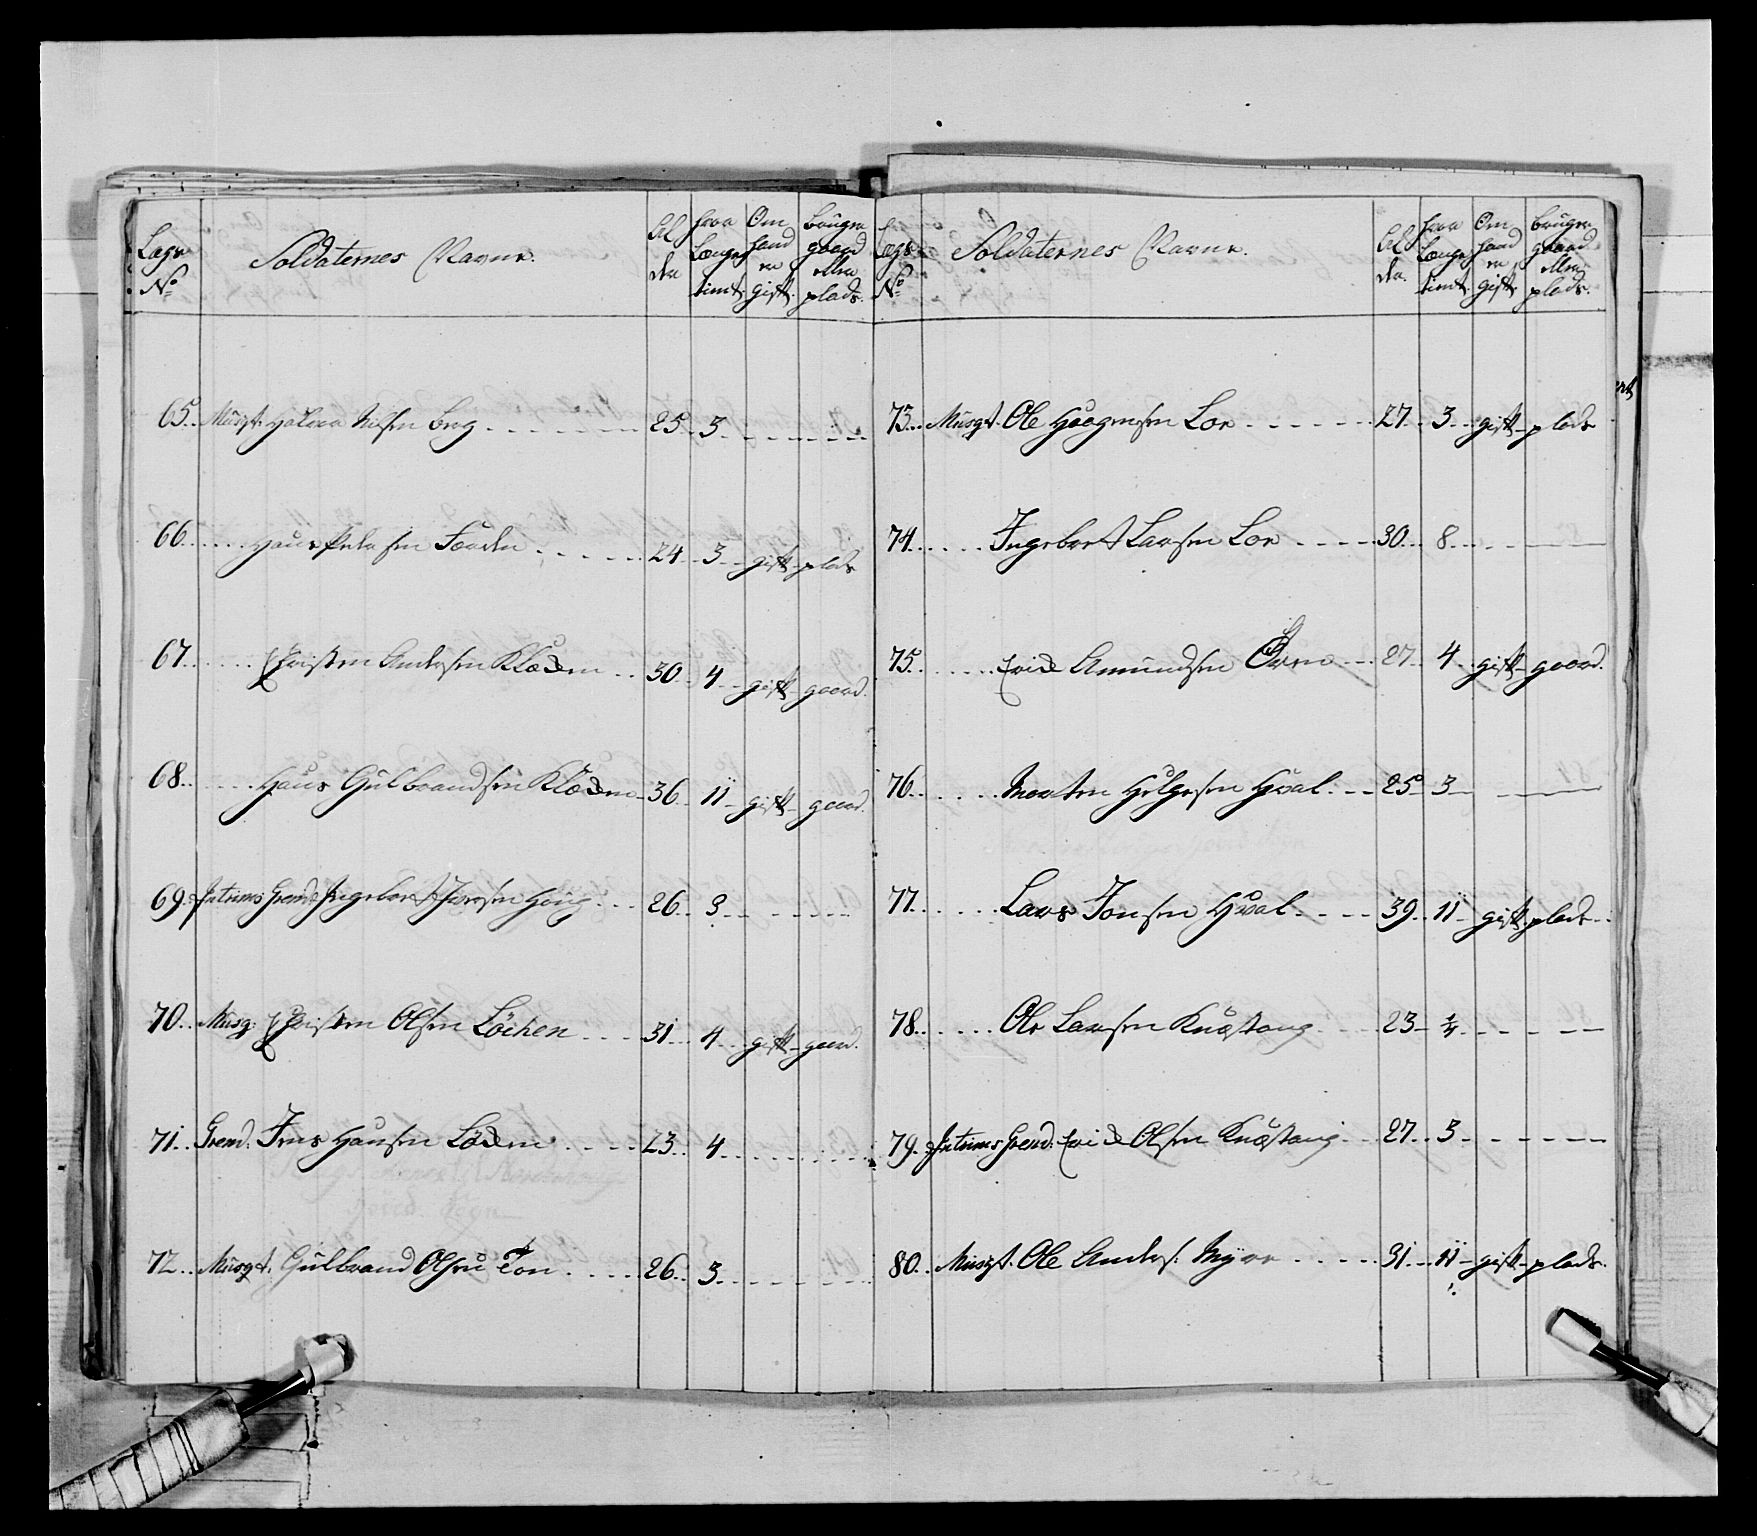 Lægs No Soldaternes Navne. Alder hvor Længe tient. Om hand er gift. bruger gaard eller plads.
65. Musqt: Halvor Nilsen Berg 25 3
66 Hans Peder sen 24 3 gift plads
67 Christen Andersen Kloden 30 4 gift gaard.
68 Hans Gulbrandsen Kloden 36 11 gift gaard.
69. Intrims Grend: Ingebret Iversen Houg 26 3
70 Musq: Christen Olsen Löchen 31 4 gift gaard.
71 Grend. Jens Hansen 23 4
72 Musqt. Gulbrand Olsen Ton 26 3
Lægs No Soldaternes Navne. Alder. hvor Længe tient. Om hand er gift. bruger gaard eller plads.
73 Musqt. Ole Haagensen Loe 27 3 gift plads
74 Ingebret Larsen Loe 30 8
75 Erick Amundsen 27 4 gift gaard.
76 Morten Helgesen Hval 25 3
77 Lars Jonsen Hval 39 11 gift plads
78 Ole Larsen Knæstang 23 ¼
79. Intrims Grend: Erick Olsen Knæstang 27 3
80 Musqt. Ole Anders: Myre 31 11 gift plads.